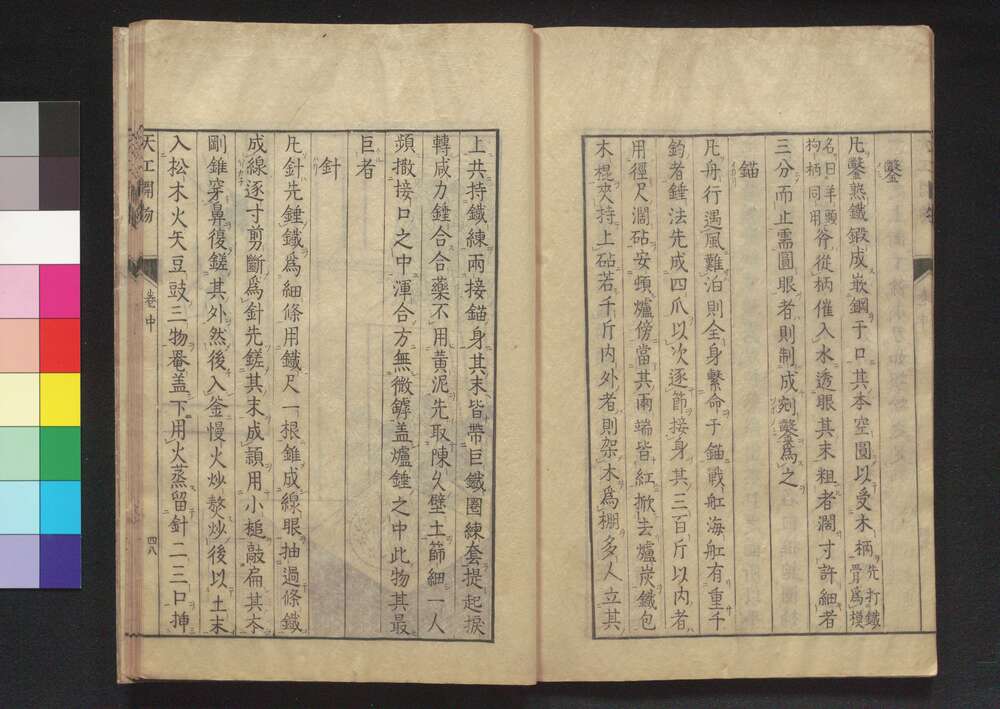 鑿
凡鑿熟鐵鍛成嵌鋼于口其本空圓以受木柄先打鐵骨爲模
名曰羊頭杓柄同用斧從柄催入水透眼其末粗者濶寸許細者
三分而止需圓眼者則制成剜鑿爲之
錨
凡舟行遇風難泊則全身繫命于錨戰舡海舡有重千
鈞者錘法先成四爪以次逐節接身其三百斤以内者
用徑尺濶砧安頓爐傍當其兩端皆紅掀去爐炭鐵包
木棍夾持上砧若千斤内外者則架木爲棚多人立其
上共持鐵練兩接錨身其末皆帶巨鐵圈練套提起捩
轉咸力錘合合藥不用黃泥先取陳久壁土篩細一人
頻撒接口之中渾合方無微罅盖爐錘之中此物其最
巨者
針
凡針先錘鐵爲細條用鐵尺一根錐成線眼抽過條鐵
成線逐寸剪斷爲針先鎈其末成頴用小槌敲扁其本
剛錐穿鼻復鎈其外然後入釜慢火炒熬炒後以土末
入松木火矢豆豉三物罨盖下用火蒸留針二三口揷
天工開物
卷中
四八